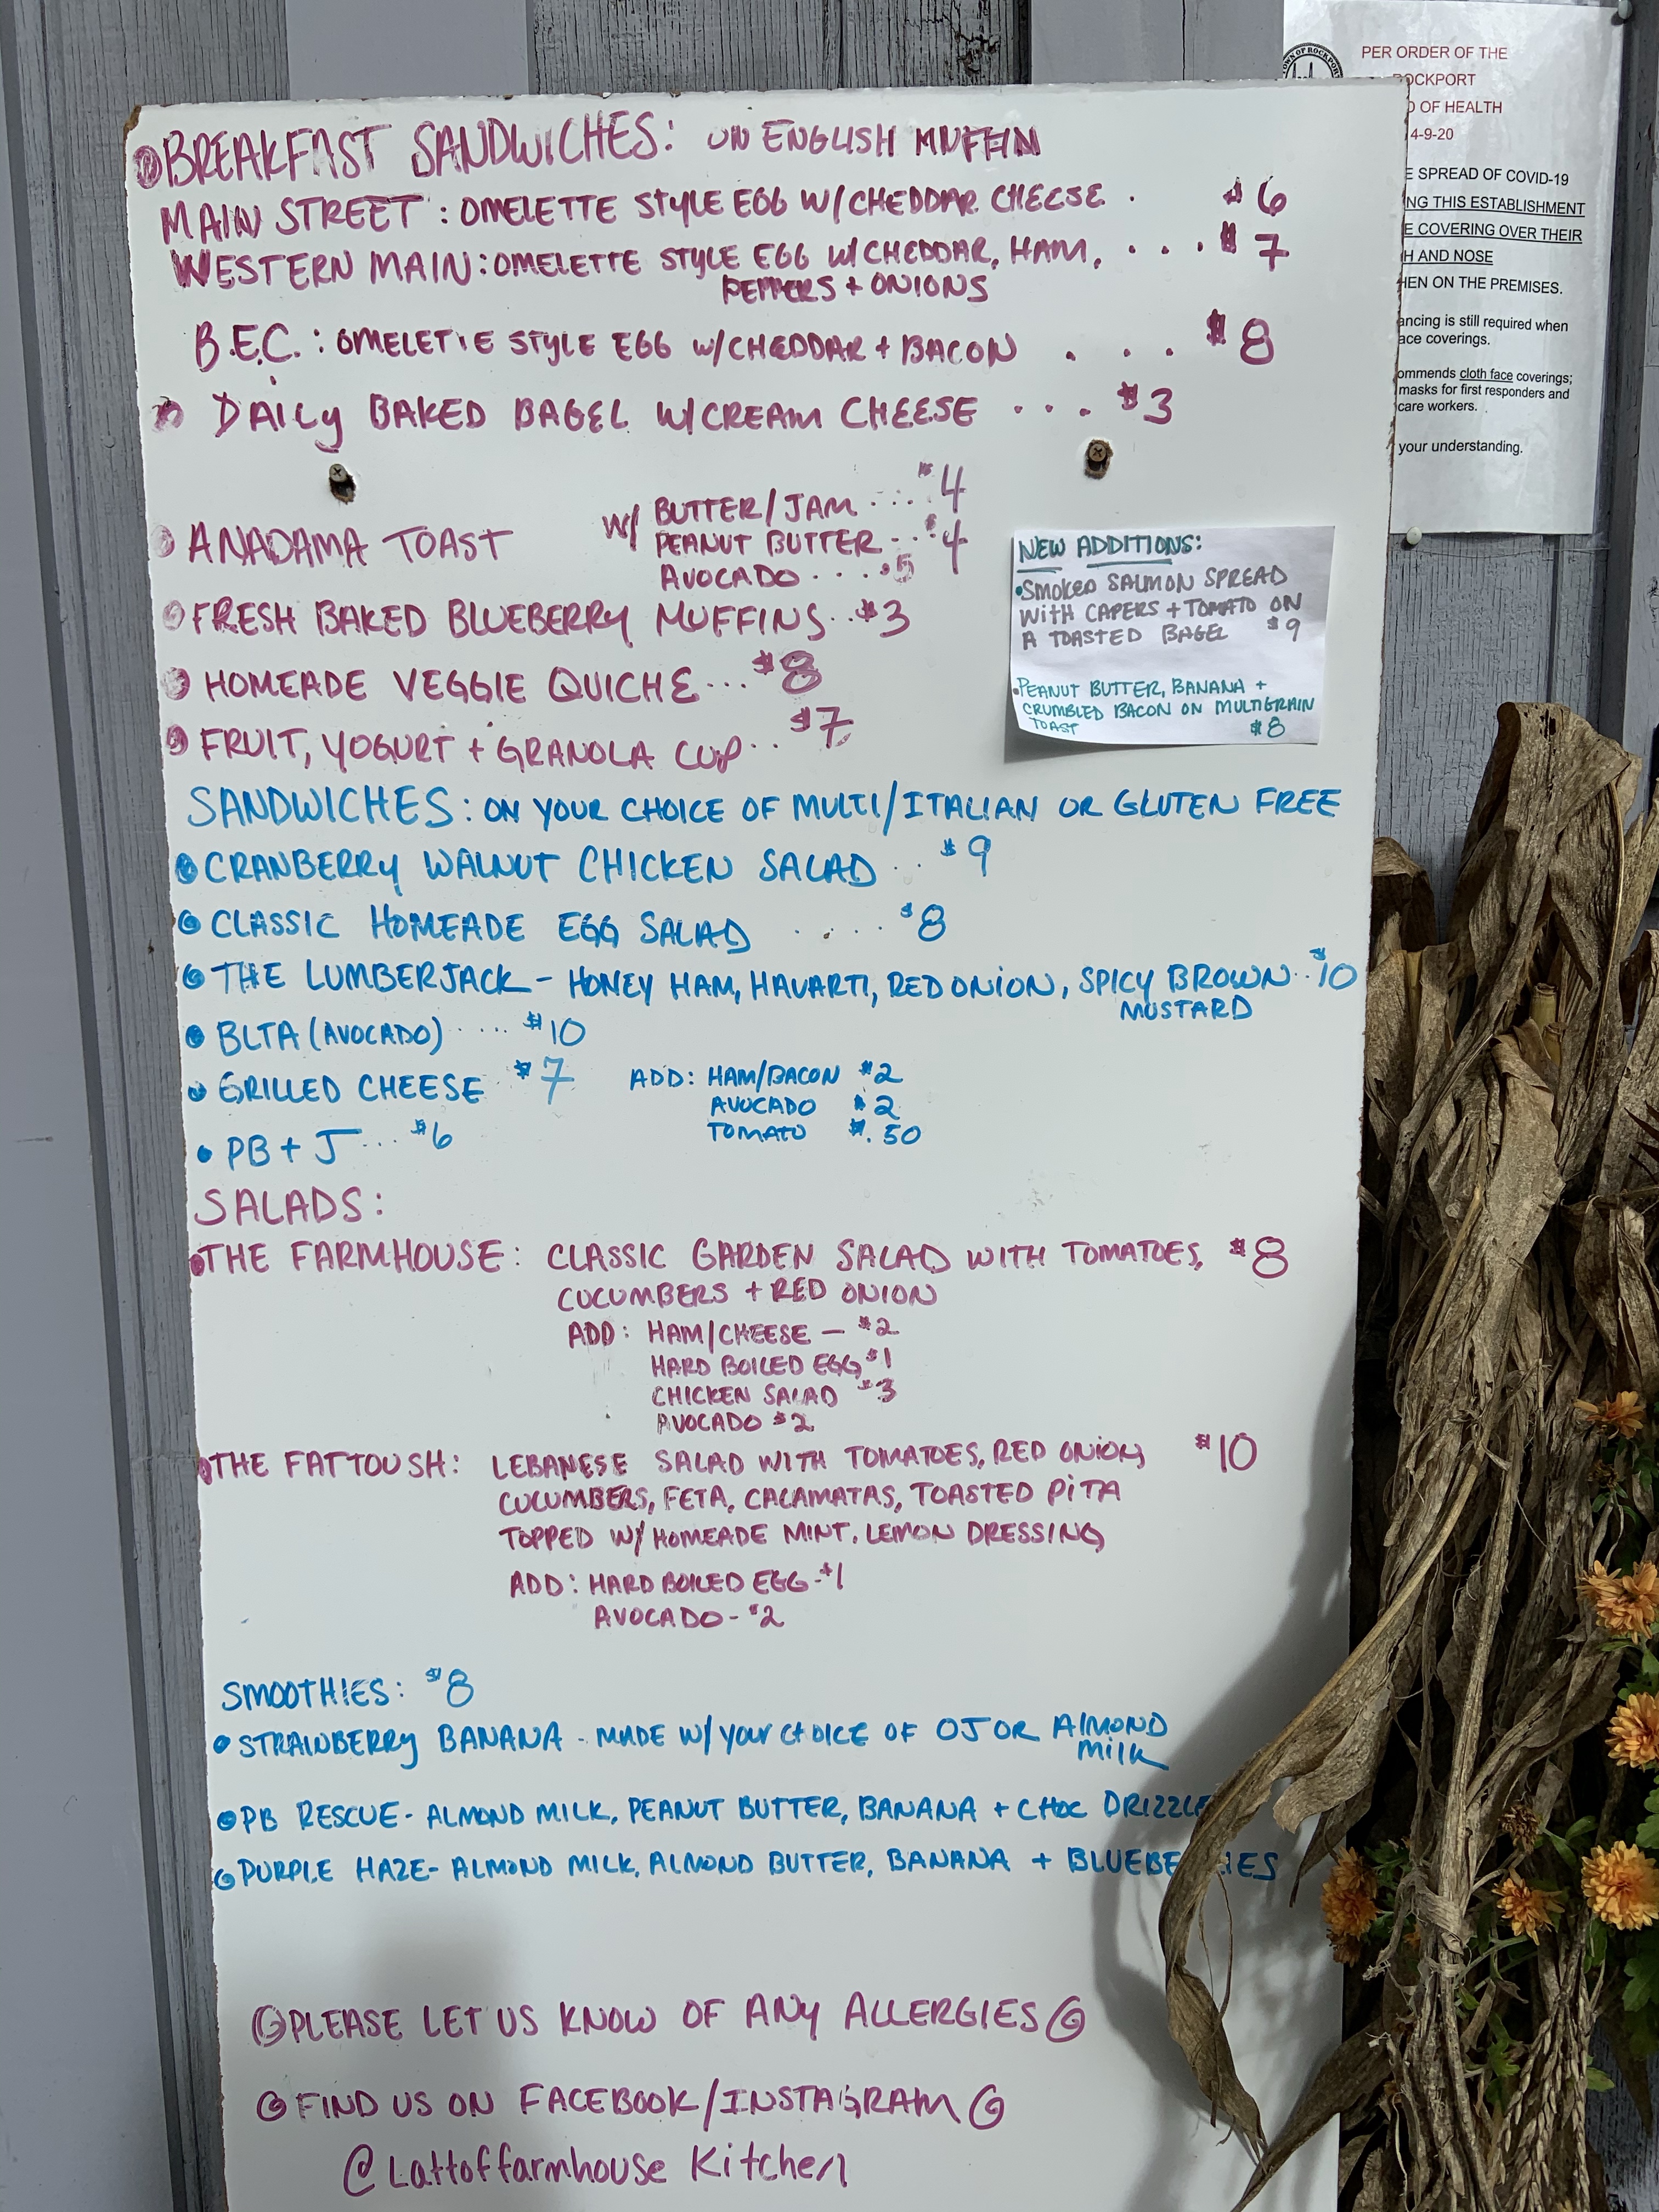 BREAKFAST SANDWICHES: ON ENGLISH MUFFIN
MAIN STREET: OMELETTE STYLE EGG W/CHEDDAR CHEESE . $6
WESTERN MAIN: OMELETTE STYLE EGG W/CHEDDAR, HAM, . . . $7
PEPPERS + ONIONS
B.E.C.: OMELETTE STYLE EGG W/CHEDDAR + BACON . . . $8
DAILY BAKED BAGEL W/CREAM CHEESE . . . $3
ANADAMA TOAST W/ BUTTER/JAM . . . $4
PEANUT BUTTER . . $4
AVOCADO . . . . $5
FRESH BAKED BLUEBERRY MUFFINS . . $3
HOMEADE VEGGIE QUICHE . . . $8
FRUIT, YOGURT + GRANOLA CUP . . $7
NEW ADDITIONS:
• SMOKED SALMON SPREAD
WITH CAPERS + TOMATO ON
A TOASTED BAGEL $9
• PEANUT BUTTER, BANANA +
CRUMBLED BACON ON MULTIGRAIN
TOAST $8
SANDWICHES: ON YOUR CHOICE OF MULTI/ITALIAN OR GLUTEN FREE
• CRANBERRY WALNUT CHICKEN SALAD . . $9
• CLASSIC HOMEADE EGG SALAD . . . . . $8
• THE LUMBERJACK - HONEY HAM, HAVARTI, RED ONION, SPICY BROWN . . $10
MUSTARD
• BLTA (AVOCADO) . . . . . $10
• GRILLED CHEESE $7 ADD: HAM/BACON $2
AVOCADO $2
TOMATO $.50
• PB + J . . . $6
SALADS:
• THE FARMHOUSE: CLASSIC GARDEN SALAD WITH TOMATOES, $8
CUCUMBERS + RED ONION
ADD: HAM/CHEESE - $2
HARD BOILED EGG $1
CHICKEN SALAD $3
AVOCADO $2
• THE FATTOUSH: LEBANESE SALAD WITH TOMATOES, RED ONION, $10
CUCUMBERS, FETA, CALAMATAS, TOASTED PITA
TOPPED W/ HOMEADE MINT. LEMON DRESSING
ADD: HARD BOILED EGG - $1
AVOCADO - $2
SMOOTHIES: $8
• STRAWBERRY BANANA - MADE W/ YOUR CHOICE OF OJ OR ALMOND
MILK
• PB RESCUE - ALMOND MILK, PEANUT BUTTER, BANANA + CHOC DRIZZLE
• PURPLE HAZE - ALMOND MILK, ALMOND BUTTER, BANANA + BLUEBERRIES
PLEASE LET US KNOW OF ANY ALLERGIES
FIND US ON FACEBOOK/INSTAGRAM
@Lattoffarmhouse Kitchen
PER ORDER OF THE
ROCKPORT
OF HEALTH
4-9-20
SPREAD OF COVID-19
THIS ESTABLISHMENT
COVERING OVER THEIR
AND NOSE
ON THE PREMISES.
is still required when
coverings.
cloth face coverings;
masks for first responders and
care workers.
your understanding.